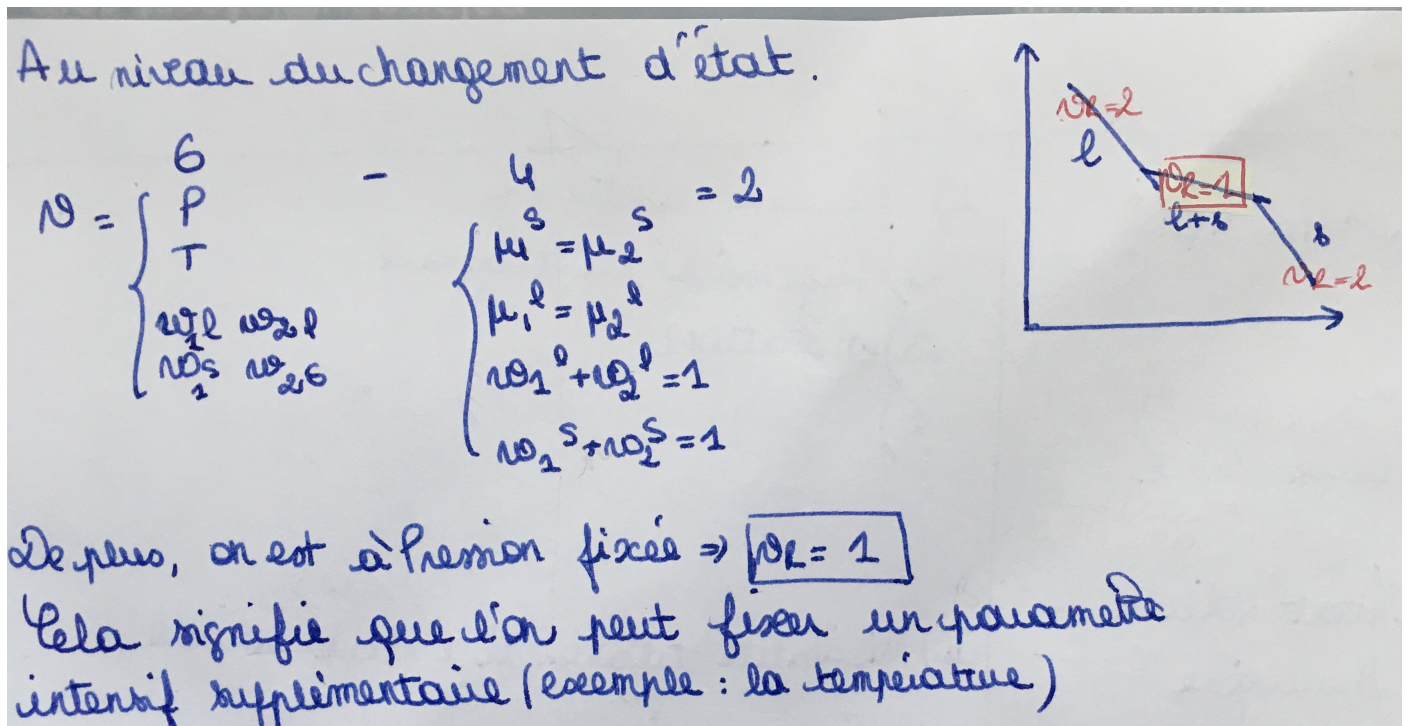 Au niveau du changement d'état.
6 - 4 = 2
v = { P
T
w1l w2l
w1s w2s
{ μ1^s = μ2^s
μ1^l = μ2^l
w1^l + w2^l = 1
w1^s + w2^s = 1
vR=2
l
vR=1
l+s
s
vR=2
De plus, on est à Pression fixée ⇒ vR = 1
Cela signifie que l'on peut fixer un paramètre
intensif supplémentaire (exemple : la température)